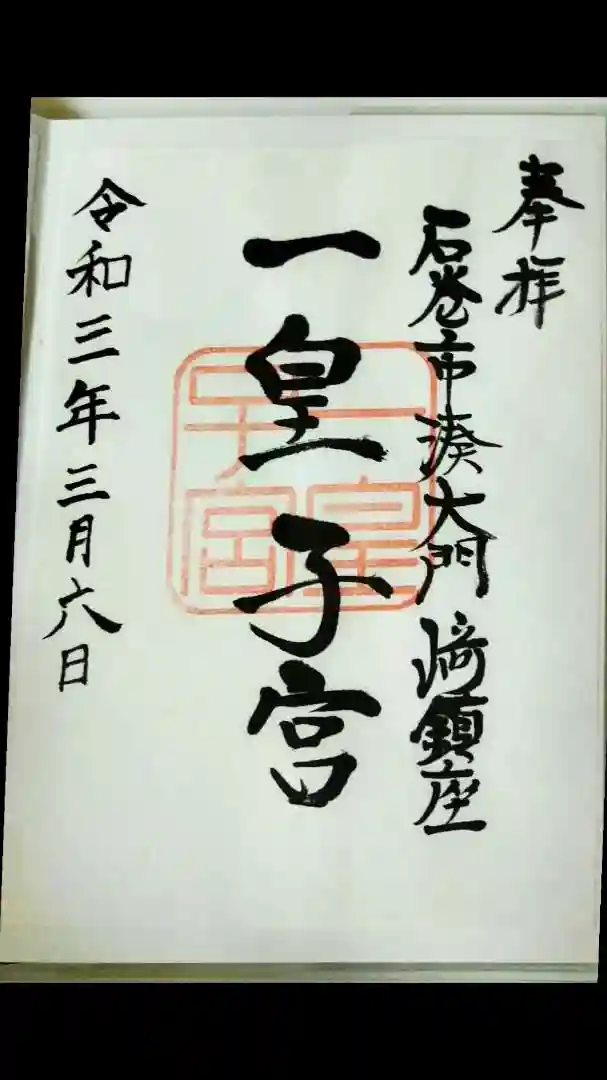 奉拝
石巻市湊大門崎鎮座
一皇子宮
一皇子宮
令和三年三月六日